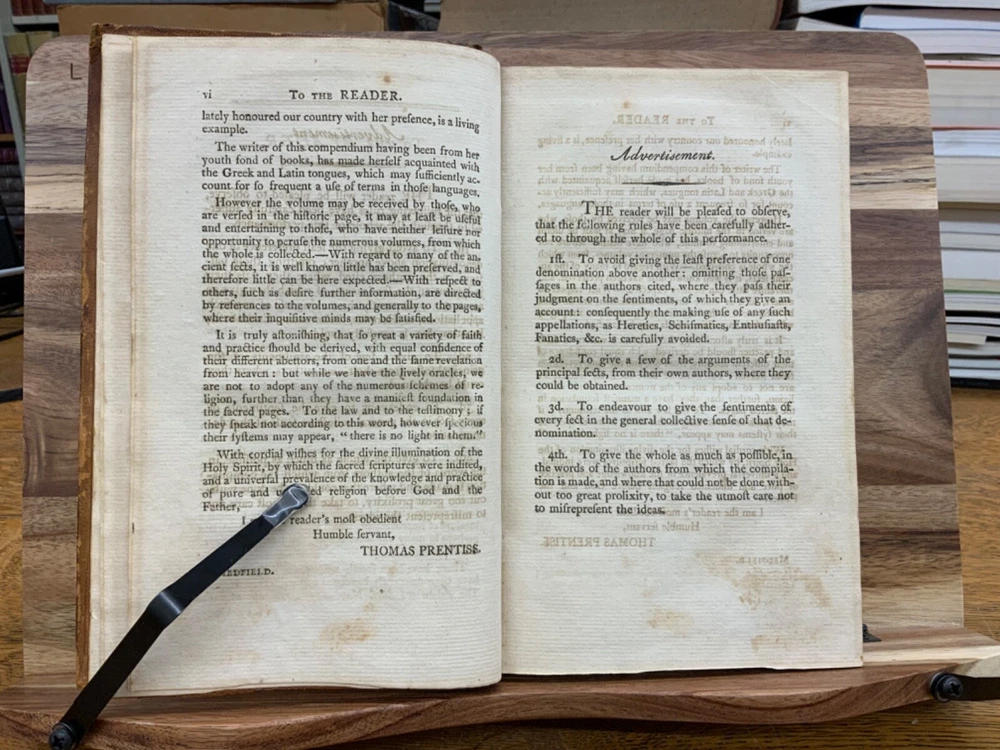 vi To the READER.
lately honoured our country with her preſence, is a living
example.
The writer of this compendium having been from her
youth fond of books, has made herſelf acquainted with
the Greek and Latin tongues, which may ſufficiently ac-
count for ſo frequent a uſe of terms in thoſe languages.
However the volume may be received by thoſe, who
are verſed in the hiſtoric page, it may at leaſt be uſeful
and entertaining to thoſe, who have neither leiſure nor
opportunity to peruſe the numerous volumes, from which
the whole is collected.—With regard to many of the an-
cient ſects, it is well known little has been preſerved, and
therefore little can be here expected.—With reſpect to
others, ſuch as deſire further information, are directed
by references to the volumes, and generally to the pages,
where their inquiſitive minds may be ſatisfied.
It is truly aſtoniſhing, that ſo great a variety of faith
and practice ſhould be derived, with equal confidence of
their different abettors, from one and the ſame revelation
from heaven : but while we have the lively oracles, we
are not to adopt any of the numerous ſchemes of re-
ligion, further than they have a manifeſt foundation in
the ſacred pages. To the law and to the teſtimony ; if
they ſpeak not according to this word, however ſpecious
their ſyſtems may appear, “there is no light in them.”
With cordial wiſhes for the divine illumination of the
Holy Spirit, by which the ſacred ſcriptures were indited,
and a univerſal prevalence of the knowledge and practice
of pure and religion before God and the
Father,
I reader's moſt obedient
Humble ſervant,
THOMAS PRENTISS.
MEDFIELD.
Advertisement.
THE reader will be pleaſed to obſerve,
that the following rules have been carefully adher-
ed to through the whole of this performance.
1ſt. To avoid giving the leaſt preference of one
denomination above another : omitting thoſe paſ-
ſages in the authors cited, where they paſs their
judgment on the ſentiments, of which they give an
account : conſequently the making uſe of any ſuch
appellations, as Heretics, Schiſmatics, Enthuſiaſts,
Fanatics, &c. is carefully avoided.
2d. To give a few of the arguments of the
principal ſects, from their own authors, where they
could be obtained.
3d. To endeavour to give the ſentiments of
every ſect in the general collective ſenſe of that de-
nomination.
4th. To give the whole as much as poſſible, in
the words of the authors from which the compila-
tion is made, and where that could not be done with-
out too great prolixity, to take the utmoſt care not
to miſrepreſent the ideas.